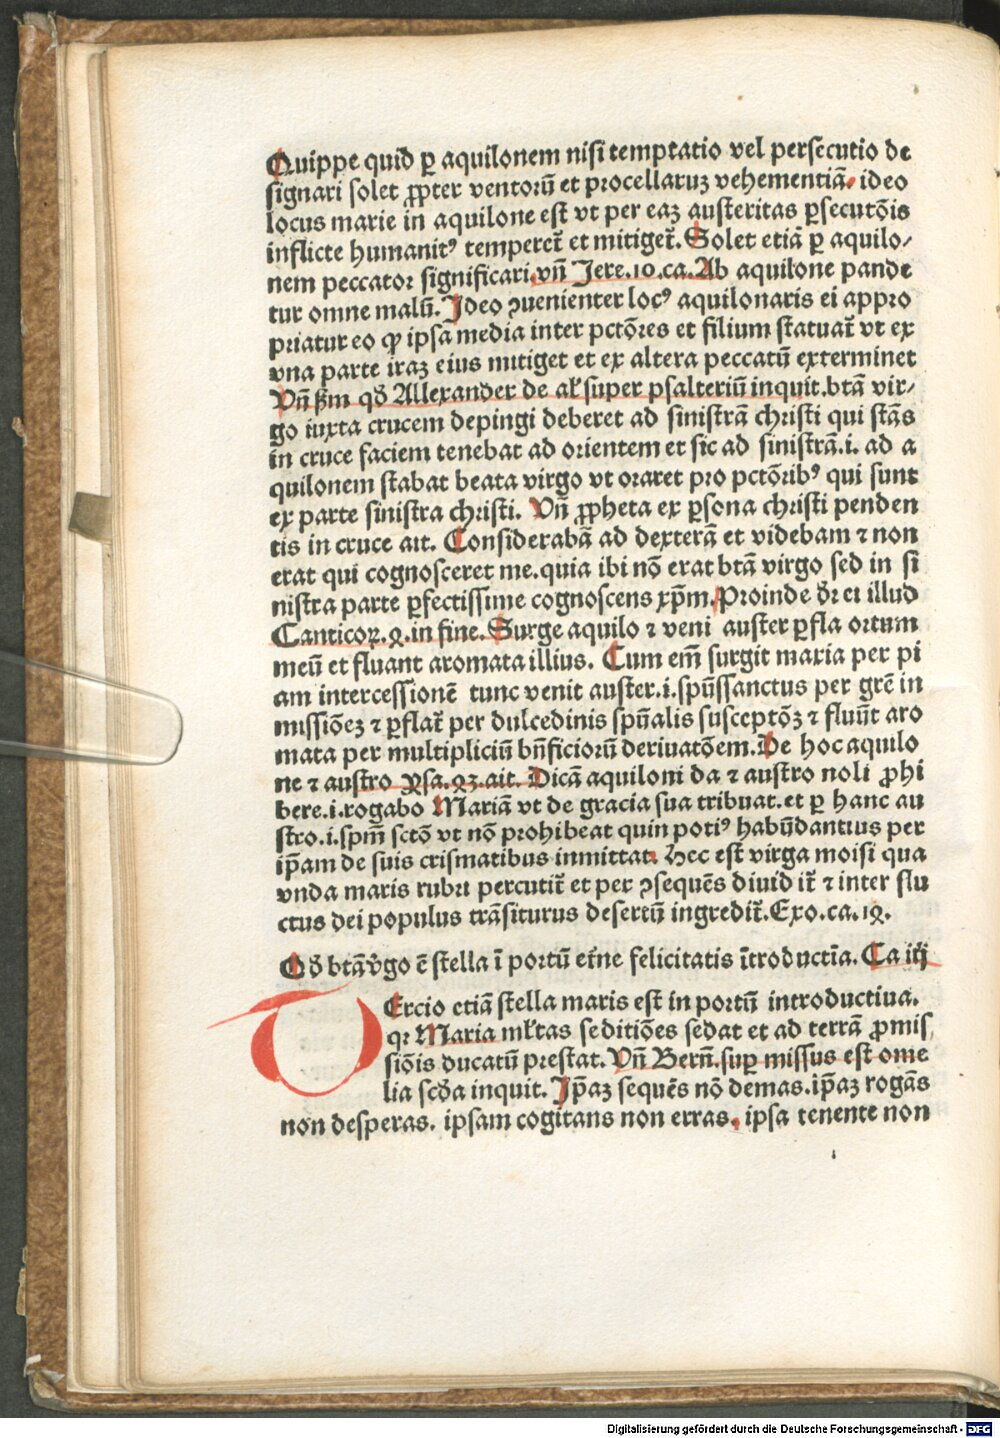 Quippe quid ꝑ aquilonem nisi temptatio vel persecutio de
signari solet ꝓpter ventorū et procellaruꝫ vehementiā. ideo
locus marie in aquilone est vt per eaꝫ austeritas ꝑsecutōis
inflicte humanitꝰ temperet̄ et mitiget̄. Solet etiā ꝑ aquilo/
nem peccator significari. vn̄ Jere.10.ca. Ab aquilone pande
tur omne malū. Jdeo ꝯuenienter locꝰ aquilonaris ei appro
priatur eo ꝙ ipsa media inter pctōres et filium statuat̄ vt ex
vna parte iraꝫ eius mitiget et ex altera peccatū exterminet
Vn̄ ẜm qđ Allexander de al̄ super psalteriū inquit. btā vir/
go iuxta crucem depingi deberet ad sinistrā christi qui stās
in cruce faciem tenebat ad orientem et sic ad sinistrā.i. ad a
quilonem stabat beata virgo vt oraret pro pctōribꝰ qui sunt
ex parte sinistra christi. Vn̄ ꝓpheta ex ꝑsona christi penden
tis in cruce ait. Considerabā ad dexterā et videbam ⁊ non
erat qui cognosceret me. quia ibi nō erat btā virgo sed in si
nistra parte ꝑfectissime cognoscens xp̄m. Proinde dr̄ ei illud
Canticoꝝ.ꝗ. in fine. Surge aquilo ⁊ veni auster ꝑfla ortum
meū et fluant aromata illius. Cum em̄ surgit maria per pi
am intercessionē tunc venit auster.i. spūssanctus per grē in
missiōeꝫ ⁊ ꝑflat̄ per dulcedinis spūalis susceptōꝫ ⁊ fluūt aro
mata per multipliciū bn̄ficiorū deriuatōem. De hoc aquilo
ne ⁊ austro ysa.ꝗ3.ait. Dicā aquiloni da ⁊ austro noli ꝓhi
bere.i. rogabo Mariā vt de gracia sua tribuat. et ꝑ hanc au
stro.i. spm̄ sctō vt nō prohibeat quin potiꝰ habūdantius per
ip̄am de suis crismatibus inmittat. Hec est virga moisi qua
vnda maris rubri percutit̄ et per ꝯsequēs diuid it̄ ⁊ inter flu
ctus dei populus trāsiturus desertū ingredit̄. Exo.ca.1ꝗ.
Qđ btā v̄go ē stella ī portū et̄ne felicitatis ītroductīa. Ca iiij
TErcio etiā stella maris est in portū introductiua.
qꝛ Maria ml̄tas seditiōes sedat et ad terrā ꝓmis
siōis ducatū prestat. Vn̄ Bern̄. suꝑ missus est ome
lia scđa inquit. Jp̄aꝫ sequēs nō demas. ip̄aꝫ rogās
non desperas. ipsam cogitans non erras, ipsa tenente non